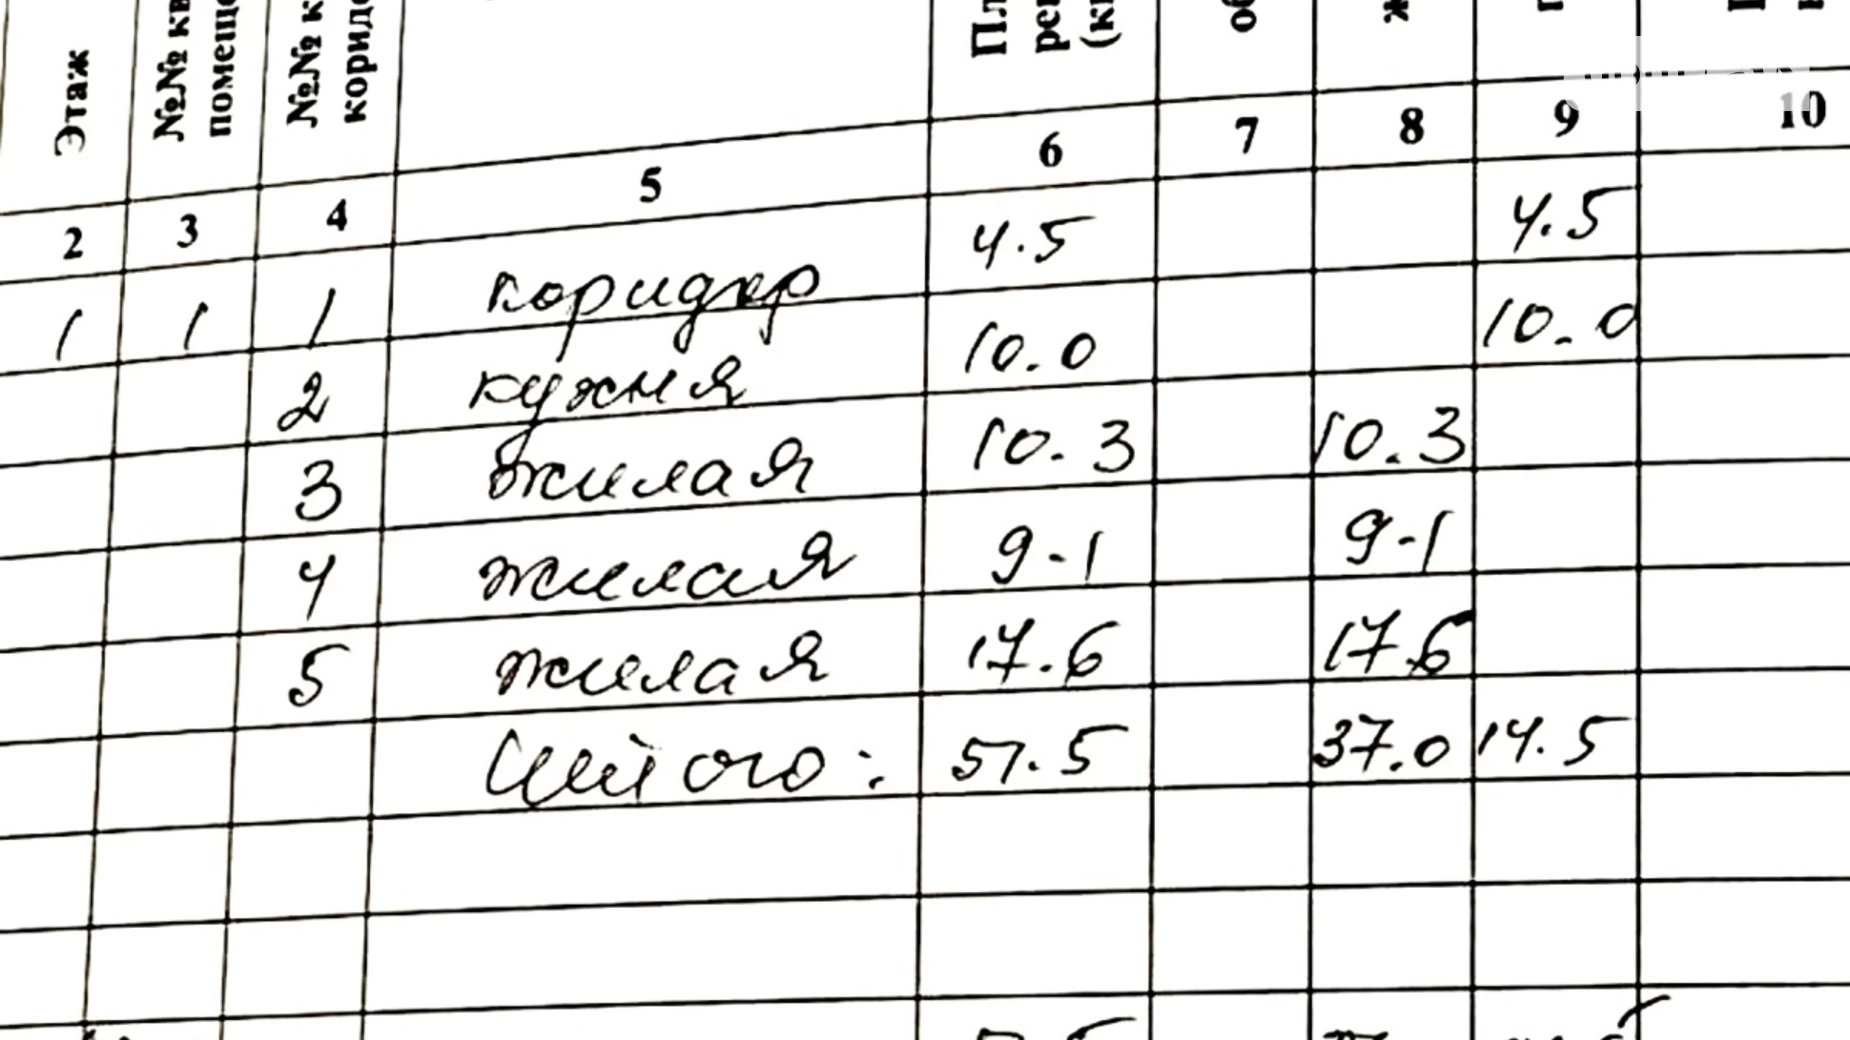 Этаж №№ кв помеще №№ к корид Пл рен (к об ж п
2 3 4 5 6 7 8 9 10
1 1 1 коридор 4.5 4.5
2 кухня 10.0 10.0
3 жилая 10.3 10.3
4 жилая 9-1 9-1
5 жилая 17.6 17.6
Итого: 51.5 37.0 14.5